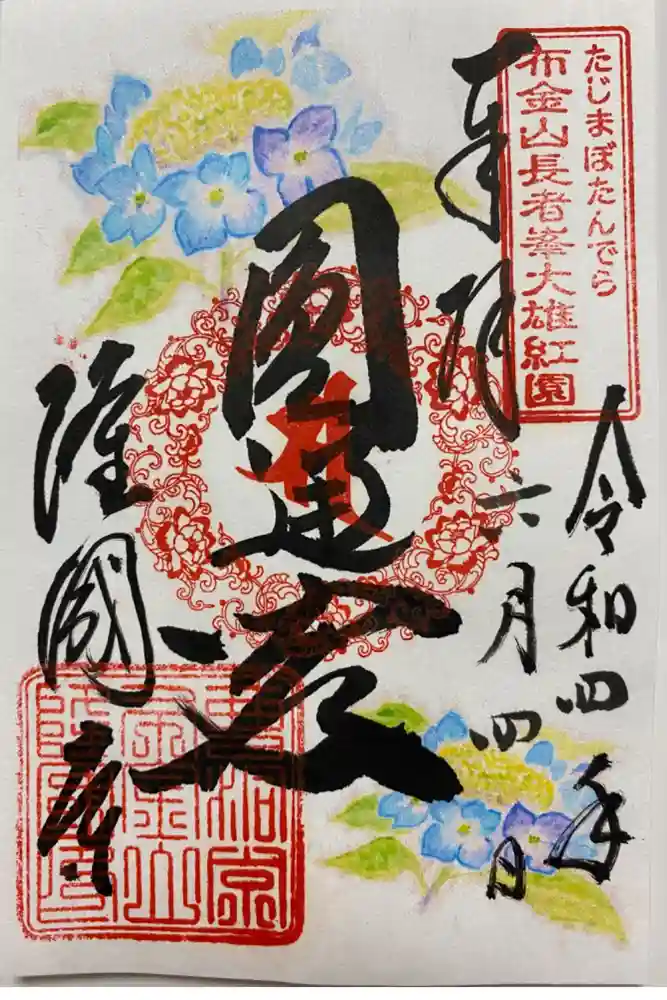 たじまぼたんでら
布金山長者峯大雄紅園
奉拝
令和四年
六月四日
圓通
隆國寺